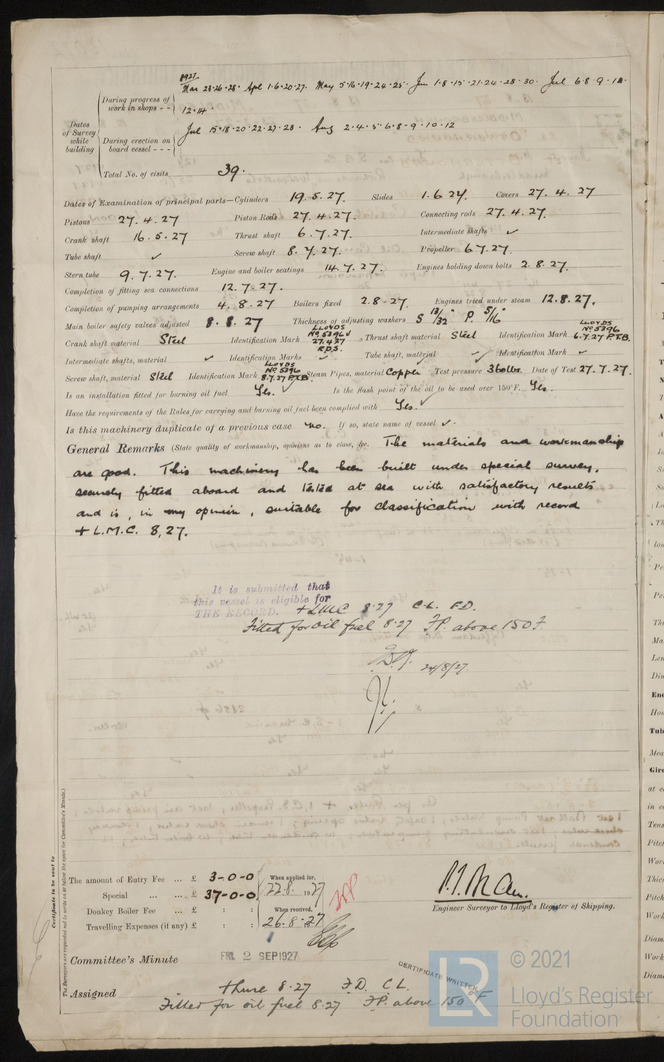 1927
Mar 23·26·28· Apl 1·6·20·27· May 5·16·19·24·25· Jun 1·8·15·21·24·28·30· Jul 6·8·9·11·
During progress of work in shops - -
12·14·
Dates of Survey while building
During erection on board vessel - - -
Jul 15·18·20·22·27·28· Aug 2·4·5·6·8·9·10·12
Total No. of visits 39.
Dates of Examination of principal parts—Cylinders 19.5.27 Slides 1·6 27. Covers 27.4.27
Pistons 27.4.27 Piston Rods 27.4.27. Connecting rods 27.4.27
Crank shaft 16.5.27 Thrust shaft 6.7.27. Intermediate shafts ✓
Tube shaft ✓ Screw shaft 8.7.27. Propeller 6.7.27.
Stern tube 9.7.27. Engine and boiler seatings 14.7.27. Engines holding down bolts 2.8.27.
Completion of fitting sea connections 12.7.27.
Completion of pumping arrangements 4.8.27 Boilers fixed 2.8.27. Engines tried under steam 12.8.27.
Main boiler safety valves adjusted 8.8.27 Thickness of adjusting washers S 13/32" P. 5/16"
Crank shaft material Steel Identification Mark LLOYDS No 5396 27.4.27 R.D.S. Thrust shaft material Steel Identification Mark LLOYDS No 5396 6.7.27 P.T.B.
Intermediate shafts, material ✓ Identification Marks ✓ Tube shaft, material ✓ Identification Mark ✓
Screw shaft, material Steel Identification Mark LLOYDS No 5396 8.7.27 P.T.B. Steam Pipes, material Copper Test pressure 360 lbs. Date of Test 27.7.27.
Is an installation fitted for burning oil fuel Yes. Is the flash point of the oil to be used over 150°F. Yes.
Have the requirements of the Rules for carrying and burning oil fuel been complied with Yes. ✓
Is this machinery duplicate of a previous case no. If so, state name of vessel ✓.
General Remarks (State quality of workmanship, opinions as to class, &c. The materials and workmanship
are good. This machinery has been built under special survey,
securely fitted aboard and tested at sea with satisfactory results
and is, in my opinion, suitable for classification with record
+ L.M.C. 8,27.
It is submitted that
this vessel is eligible for
THE RECORD. + LMC 8·27 C.L. F.D.
Fitted for oil fuel 8·27 F.P. above 150 F.
24/8/27
Certificate to be sent to
The Surveyors are requested not to write on or below the space for Committee's Minute.)
The amount of Entry Fee ... £ 3-0-0 When applied for,
Special ... ... £ 37-0-0 22.8. 1927
Donkey Boiler Fee ... £ : : When received,
Travelling Expenses (if any) £ : : 26.8.27
Engineer Surveyor to Lloyd's Register of Shipping.
Committee's Minute FRI. 2 SEP 1927
CERTIFICATE WRITTEN
Assigned + LMC 8·27 F.D. C.L.
Fitted for oil fuel 8·27 F.P. above 150° F
LR
© 2021
Lloyd's Register
Foundation